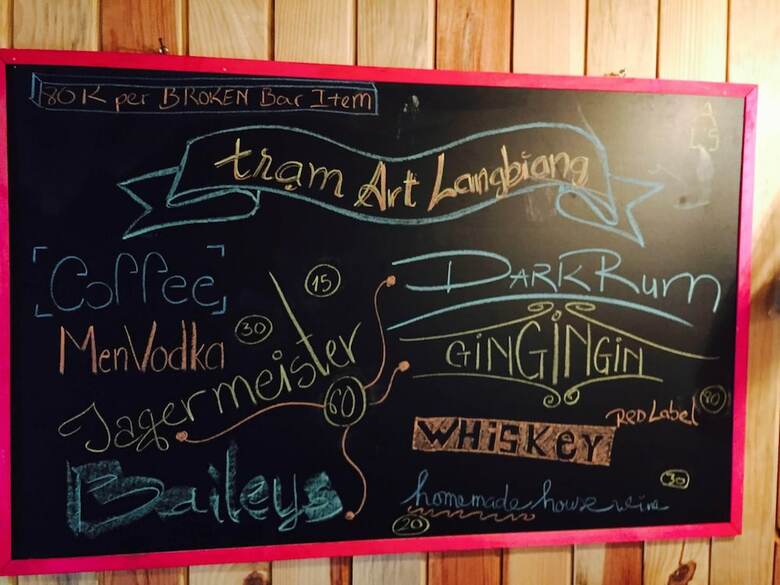 80K per BROKEN Bar Item
trạm Art Langbiang
Coffee 15
MenVodka 30
Jagermeister
60
Baileys
DARK Rum
GiNGiNGiN
RED Label 80
WHiSKEY
homemade house wine 30
20